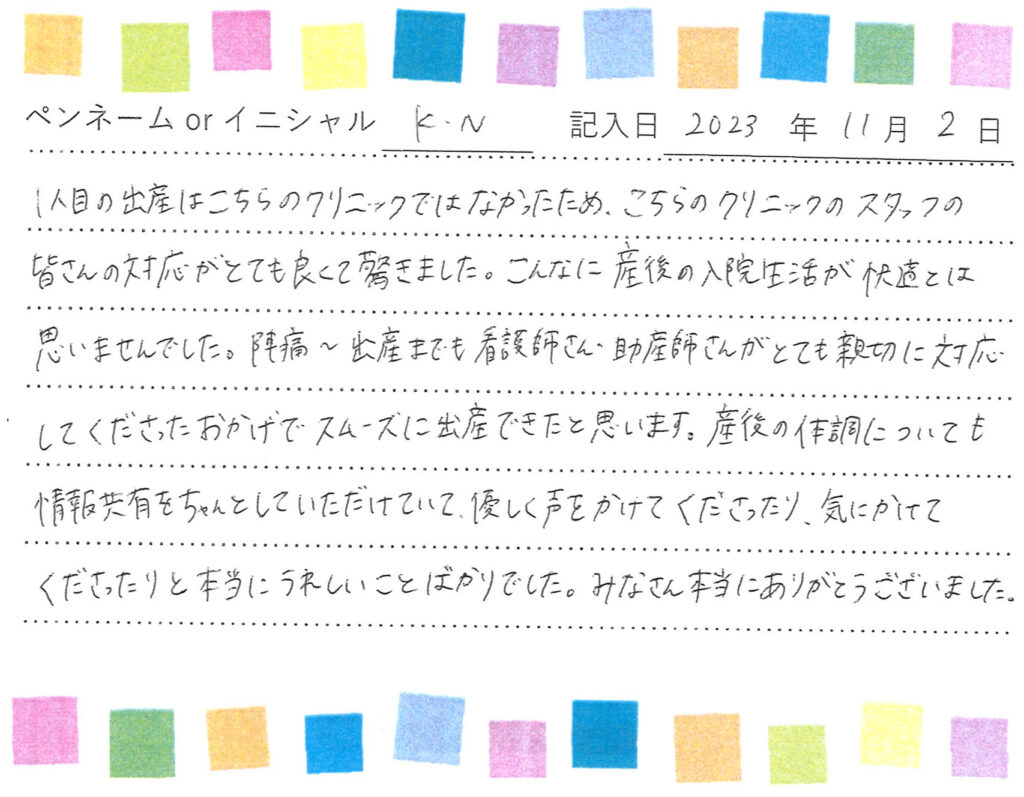 ペンネーム or イニシャル K.N 記入日 2023 年 11 月 2 日
1人目の出産はこちらのクリニックではなかったため、こちらのクリニックのスタッフの
皆さんの対応がとても良くて驚きました。こんなに産後の入院生活が快適とは
思いませんでした。陣痛〜出産までも看護師さん・助産師さんがとても親切に対応
してくださったおかげでスムーズに出産できたと思います。産後の体調についても
情報共有をちゃんとしていただけていて、優しく声をかけてくださったり、気にかけて
くださったりと本当にうれしいことばかりでした。みなさん本当にありがとうございました。